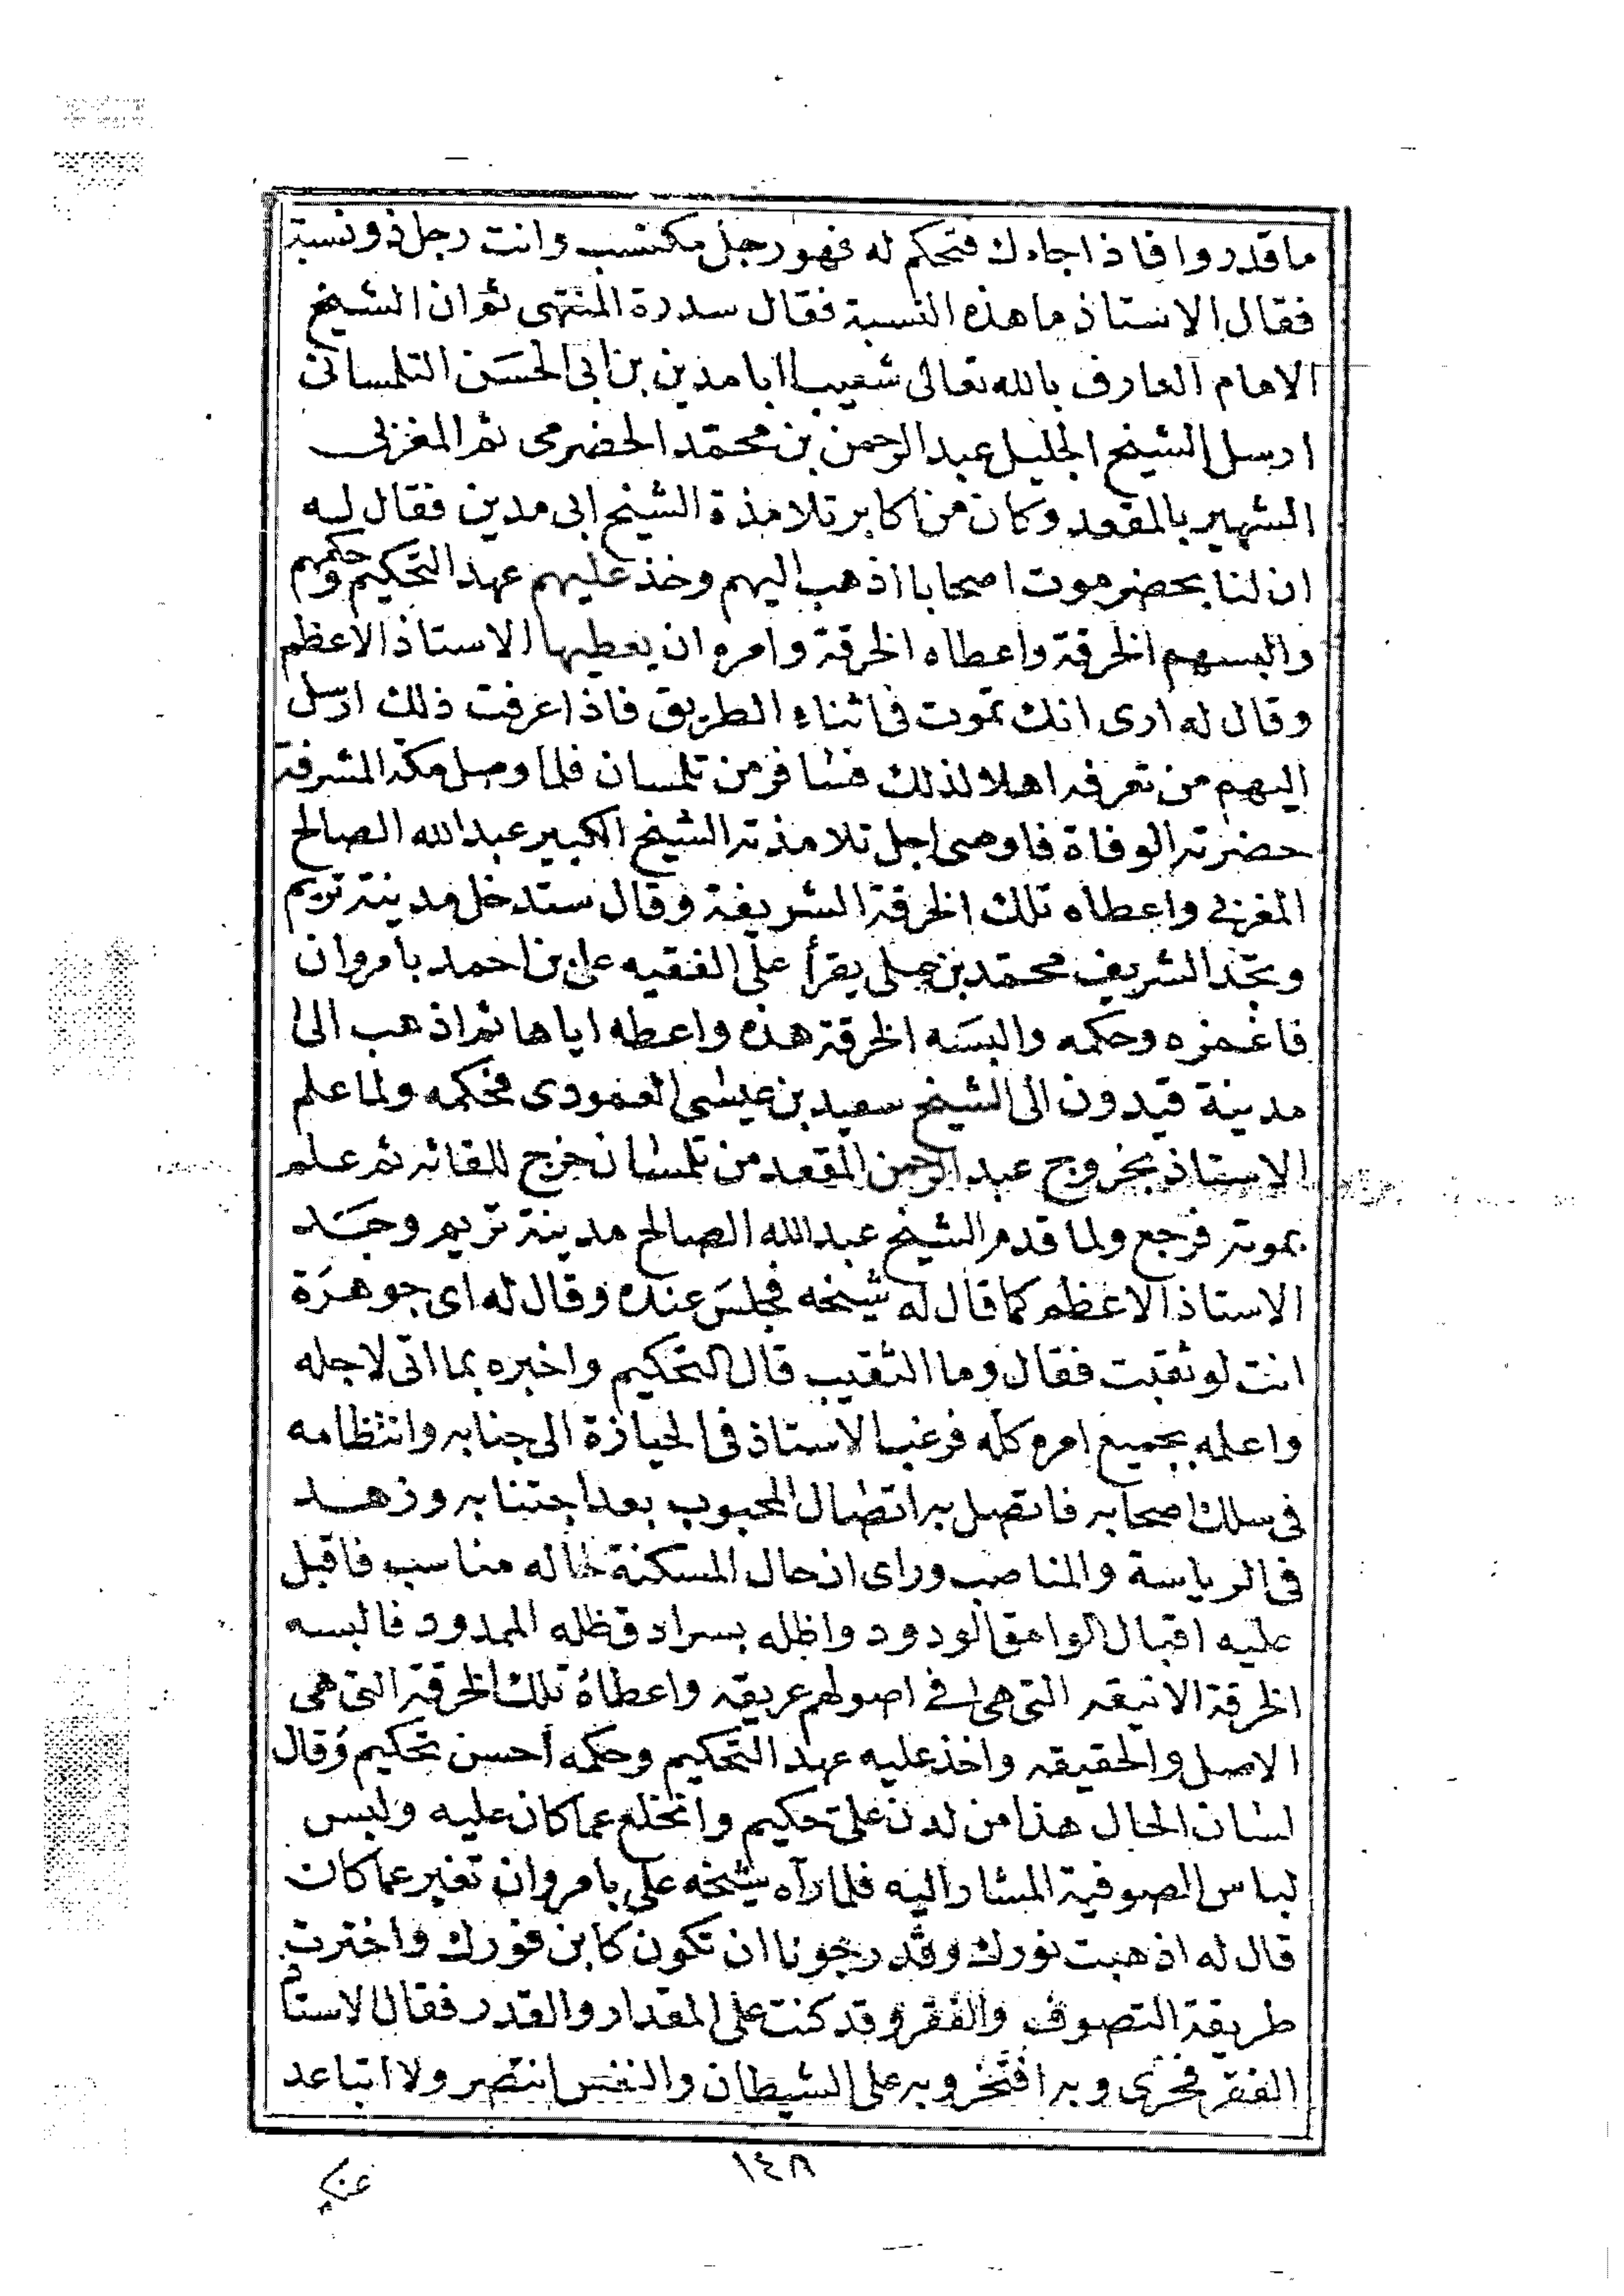 ما قدروا فاذا جاءك فتحكم له فهو رجل مكتسب وانت رجل ذو نسبة
فقال الاستاذ ما هذه النسبة فقال سدرة المنتهى ثم ان الشيخ
الامام العارف بالله تعالى شعيب ابا مدين بن ابى الحسَن التلمسانى
ارسل الشيخ الجليل عبد الرحمن بن محمّد الحضرمى ثم المغربى
الشهير بالمقعد وكان من اكابر تلامذة الشيخ ابى مدين فقال له
ان لنا بحضرموت اصحابا اذهب اليهم وخذ عليهم عهد التحكيم وحكمهم
والبسهم الخرقة واعطاه الخرقة وامره ان يعطيها الاستاذ الاعظم
وقال له ارى انك تموت فى اثناء الطريق فاذا عرفت ذلك ارسل
اليهم من تعرفه اهلا لذلك فسافر من تلمسان فلما وصل مكة المشرفة
حضرته الوفاة فاوصى اجل تلامذته الشيخ الكبير عبد الله الصالح
المغربى واعطاه تلك الخرقة الشريفة وقال ستدخل مدينة تريم
وتجد الشريف محمّد بن على يقرأ على الفقيه على بن احمد بامروان
فاغمزه وحكمه والبسَه الخرقة هذه واعطه اياها ثم اذهب الى
مدينة قيدون الى الشيخ سعيد بن عيسى العمودى فحكمه ولما علم
الاستاذ بخروج عبد الرحمن المقعد من تلمسان خرج للقائه ثم علم
بموته فرجع ولما قدم الشيخ عبد الله الصالح مدينة تريم وجَد
الاستاذ الاعظم كما قال له شيخه فجلسَ عنده وقال له اى جوهَرة
انت لو ثقبت فقال وما التثقيب قال التحكيم واخبره بما اتى لاجله
واعلمه بجميع امره كله فرغب الاستاذ فى الحيازة الى جنابه وانتظامه
فى سلك اصحابه فاتصل به اتصال المحبوب بعد اجتنابه وزهد
فى الرياسة والمناصب وراى ان حال المسكنة لحاله مناسب فاقبل
عليه اقبال الوامق الودود واظله بسرادق ظله الممدود فالبسه
الخرقة الانيقه التى هى فى اصولهم عريقه واعطاه تلك الخرقة التى هى
الاصل والحقيقه واخذ عليه عهد التحكيم وحكمه أحسن تحكيم وقال
لسان الحال هذا من لدن علىّ حكيم وانخلع عما كان عليه ولبس
لباس الصوفية المشار اليه فلما رآه شيخه على بامروان تغير عما كان
قال له اذهبت نورك وقد رجونا ان تكون كابن فورك واخترت
طريقة التصوف والفقر وقد كنت على المقدار والقدر فقال الاستاذ
الفقر فخرى وبه افتخر وبه على الشيطان والنفس انتصر ولا اتباعد
١٤٨
عنكم